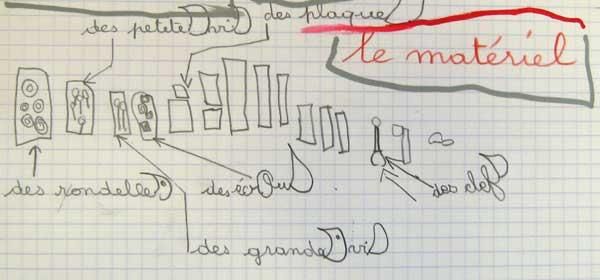 des petites vis
des plaques
le matériel
des rondelles
des écrous
des clefs
des grandes vis